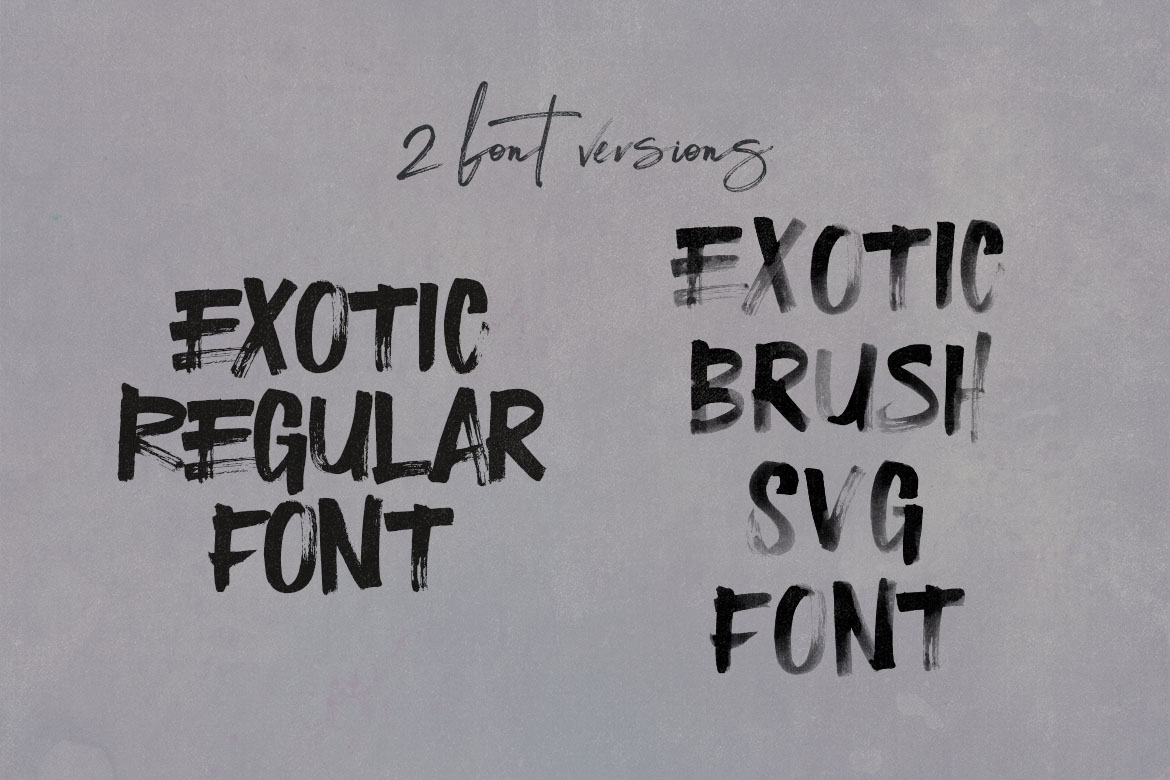 2 font versions
EXOTIC
REGULAR
FONT
EXOTIC
BRUSH
SVG
FONT